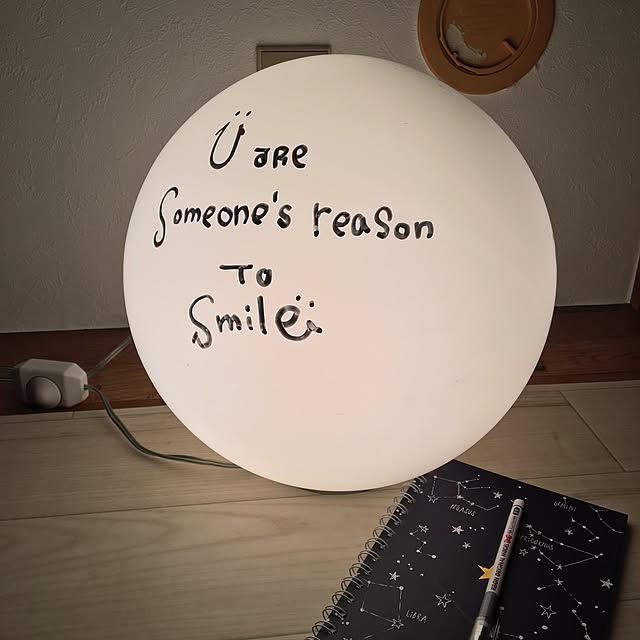 Ü are
Someone's reason
To
Smile
PEGASUS
GEMINI
LIBRA